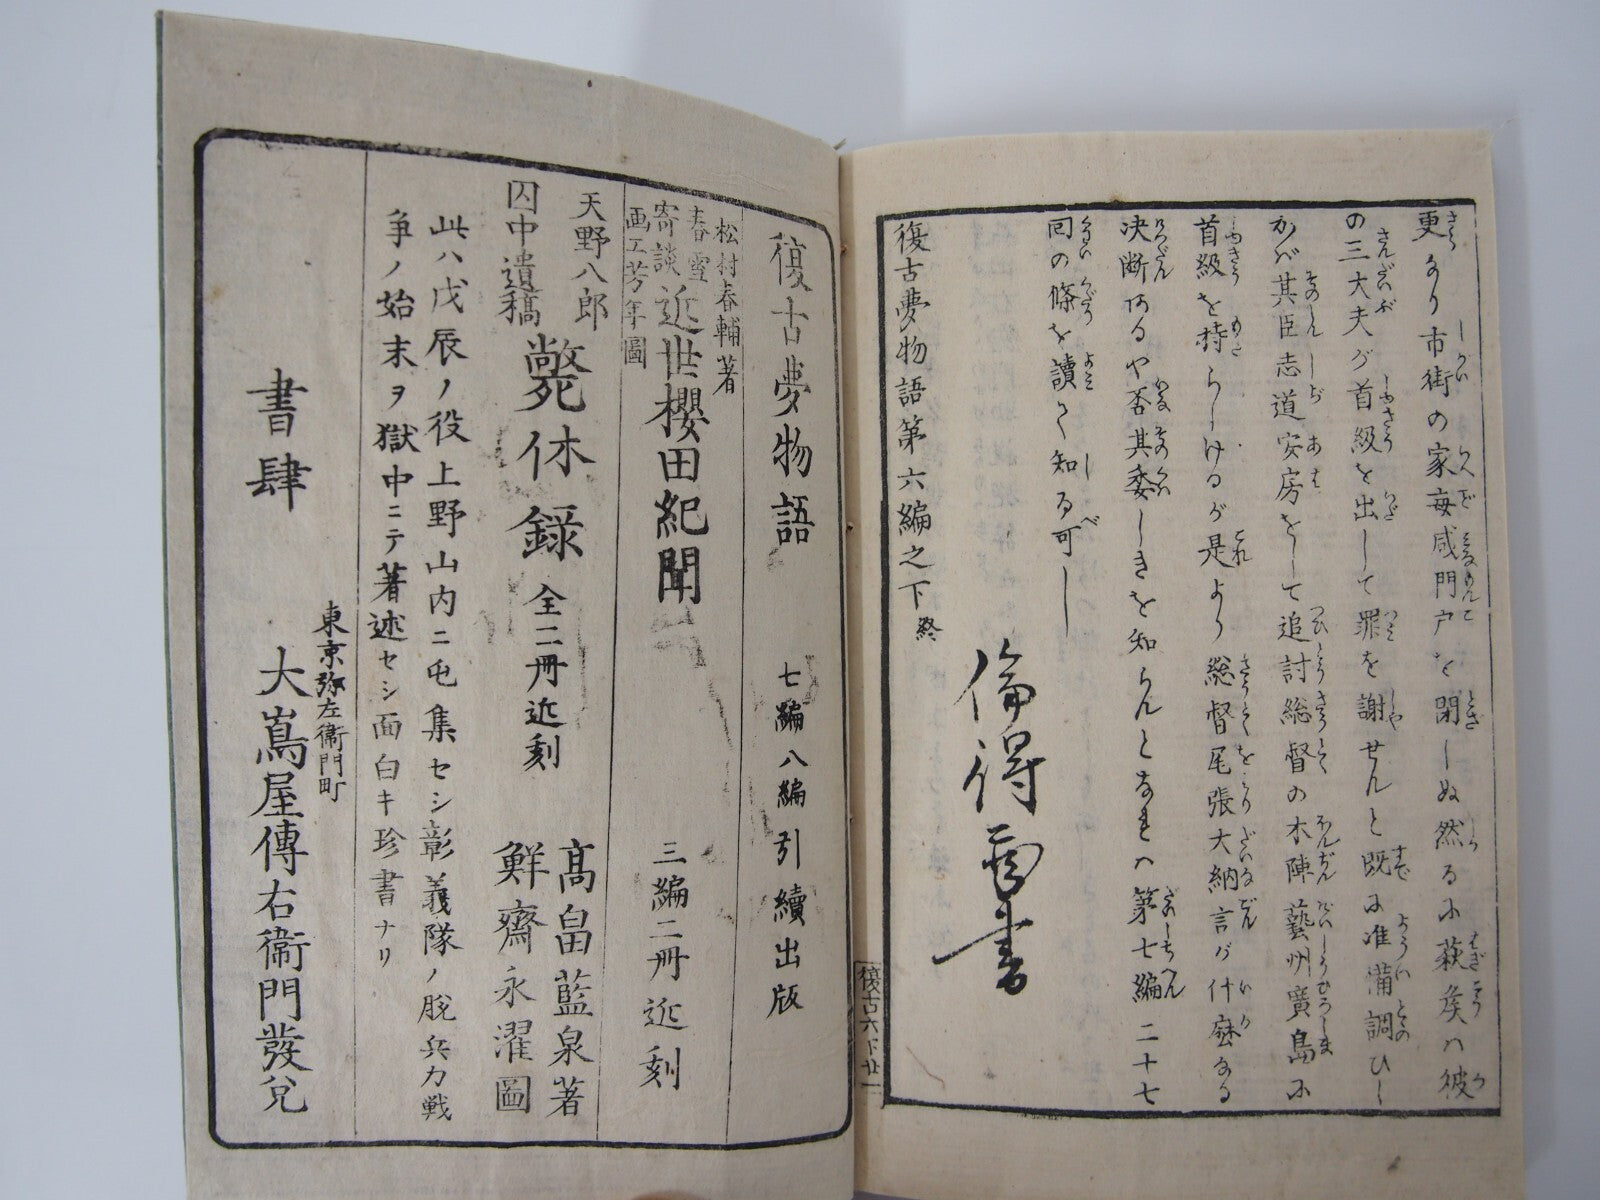 更なり市街の家毎咸門戸を閉しぬ然るに萩侯ハ彼
の三大夫が首級を出して罪を謝せんと既に准備調ひし
かバ其臣志道安房をして追討総督の本陣藝州廣島に
首級を持らしけるが是より総督尾張大納言が什麽なる
决断あるや否其委しきを知らんとならバ第七編二十七
囘の條を讀て知る可し
復古夢物語第六編之下終
復古六下廿一
復古夢物語 七編八編引續出版
松村春輔著
春雪
寄談
画工芳年圖
近世櫻田紀聞 三編二冊近刻
天野八郎
囚中遺稿
斃休録 全二冊近刻
髙畠藍泉著
鮮齋永濯圖
此ハ戊辰ノ役上野山内ニ屯集セシ彰義隊ノ脱兵力戦
争ノ始末ヲ獄中ニテ著述セシ面白キ珍書ナリ
東京弥左衞門町
書肆 大嶌屋傳右衞門發兌